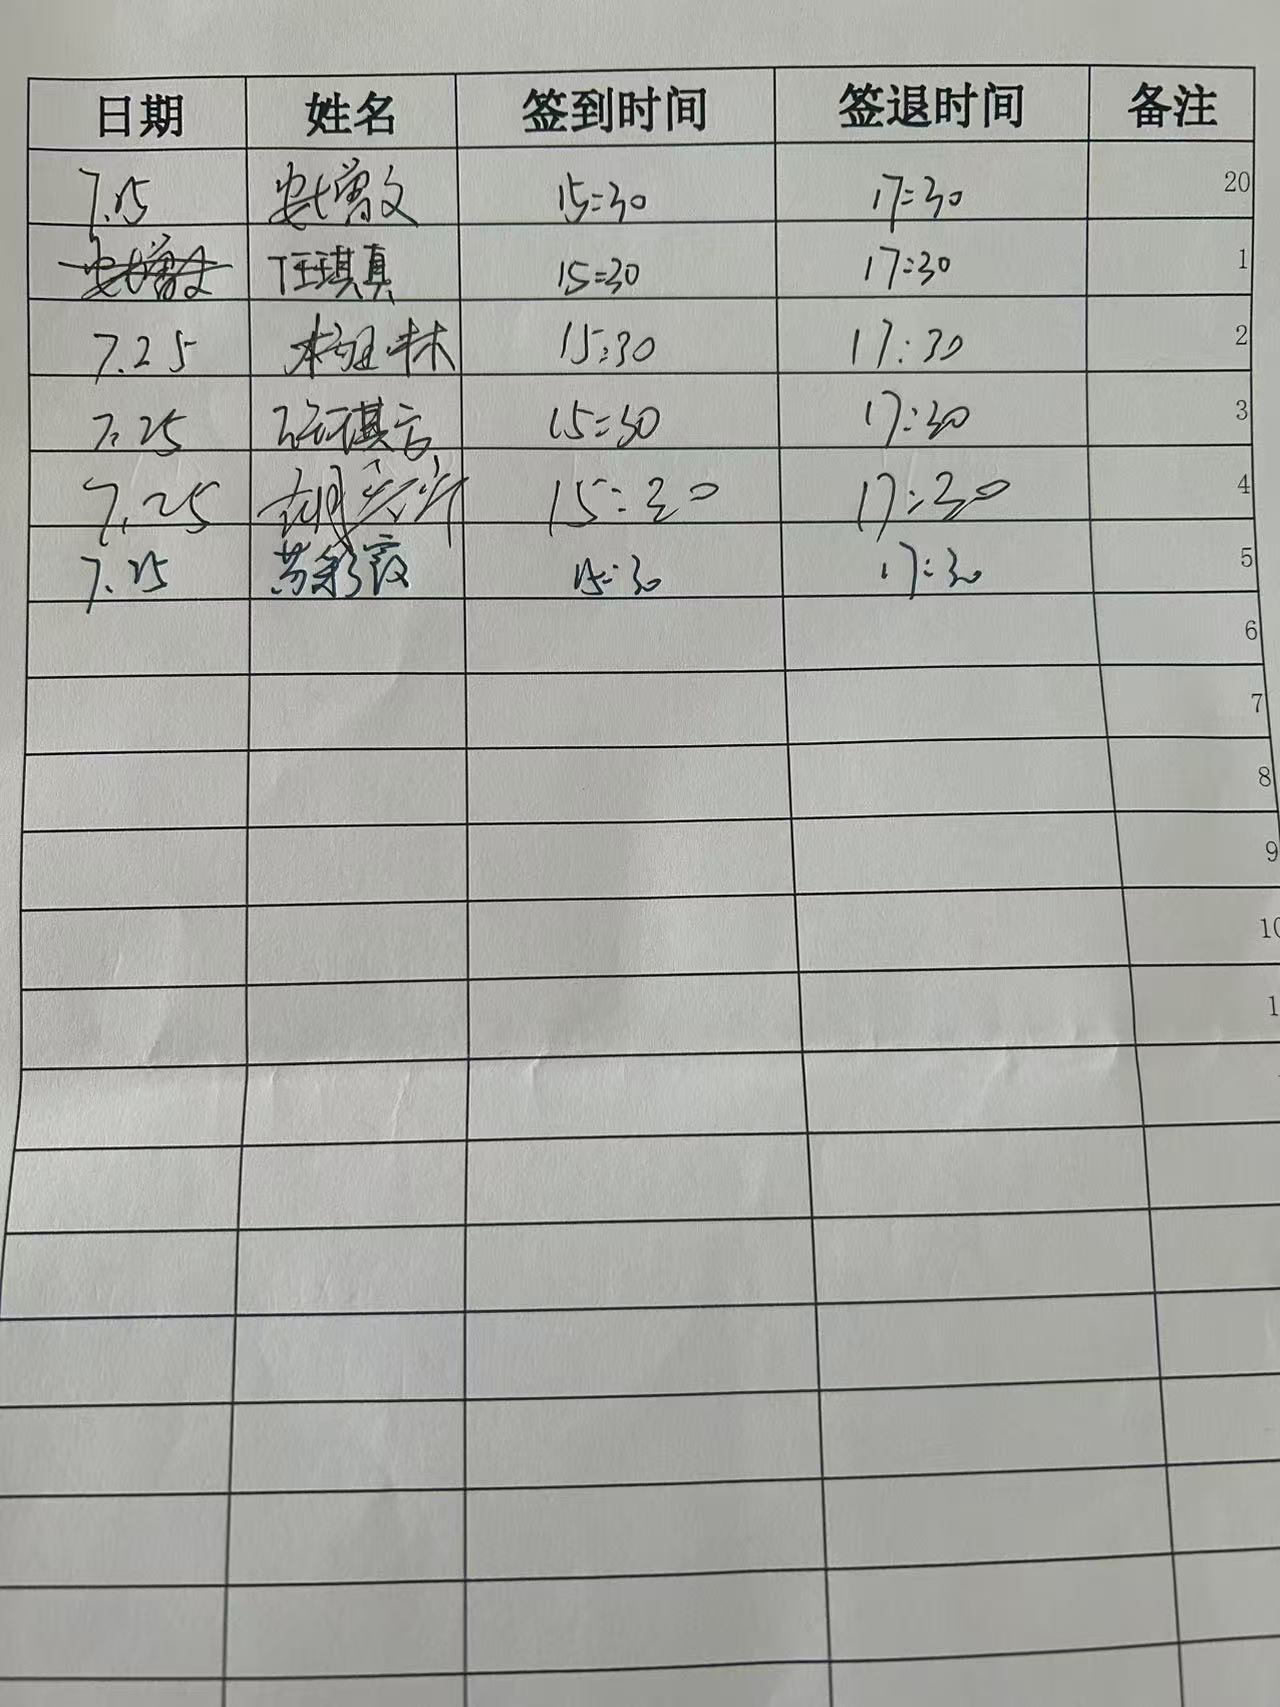 日期 姓名 签到时间 签退时间 备注
7.25 安增文 15:30 17:30 20
安增文 任琪真 15:30 17:30 1
7.25 林 15:30 17:30 2
7.25 任琪云 15:30 17:30 3
7.25 胡 15:30 17:30 4
7.25 苏彩霞 15:30 17:30 5
6
7
8
9
10
1